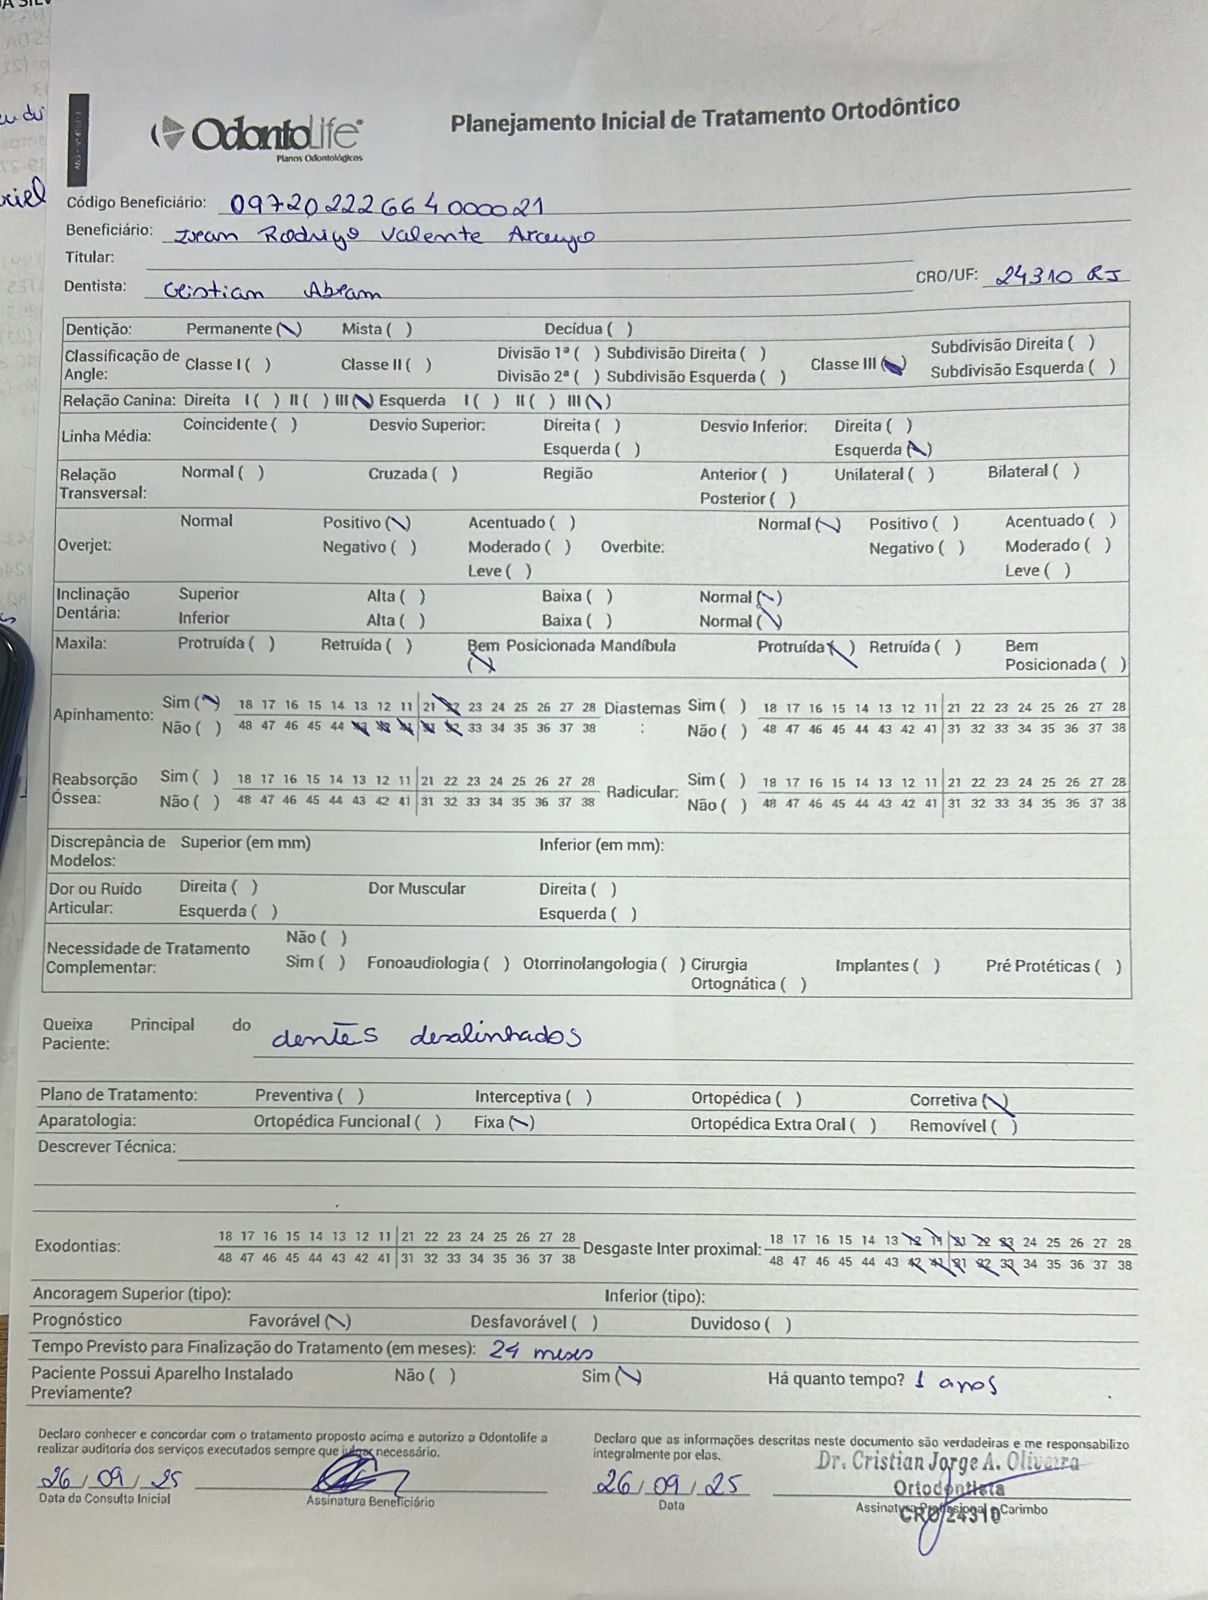 Planejamento Inicial de Tratamento Ortodôntico
OdontoLife
Planos Odontológicos
Código Beneficiário: 09720222664000021
Beneficiário: Rodrigo Valente Araujo
Titular:
Dentista: Cristian Abram CRO/UF: 24310 RJ
Dentição: Permanente (\) Mista ( ) Decídua ( )
Classificação de Angle: Classe I ( ) Classe II ( ) Divisão 1ª ( ) Subdivisão Direita ( ) Divisão 2ª ( ) Subdivisão Esquerda ( ) Classe III (\) Subdivisão Direita ( ) Subdivisão Esquerda ( )
Relação Canina: Direita I ( ) II ( ) III (\) Esquerda I ( ) II ( ) III (\)
Linha Média: Coincidente ( ) Desvio Superior: Direita ( ) Esquerda ( ) Desvio Inferior: Direita ( ) Esquerda (\)
Relação Transversal: Normal ( ) Cruzada ( ) Região Anterior ( ) Posterior ( ) Unilateral ( ) Bilateral ( )
Overjet: Normal Positivo (\) Negativo ( ) Acentuado ( ) Moderado ( ) Leve ( ) Overbite: Normal (\) Positivo ( ) Negativo ( ) Acentuado ( ) Moderado ( ) Leve ( )
Inclinação Dentária: Superior Alta ( ) Baixa ( ) Normal (\)
Inferior Alta ( ) Baixa ( ) Normal (\)
Maxila: Protruída ( ) Retruída ( ) Bem Posicionada (\) Mandíbula Protruída (\) Retruída ( ) Bem Posicionada ( )
Apinhamento: Sim (\) 18 17 16 15 14 13 12 11 21 22 23 24 25 26 27 28 Diastemas: Sim ( ) 18 17 16 15 14 13 12 11 21 22 23 24 25 26 27 28
Não ( ) 48 47 46 45 44 43 42 41 31 32 33 34 35 36 37 38 Não ( ) 48 47 46 45 44 43 42 41 31 32 33 34 35 36 37 38
Reabsorção Óssea: Sim ( ) 18 17 16 15 14 13 12 11 21 22 23 24 25 26 27 28 Radicular: Sim ( ) 18 17 16 15 14 13 12 11 21 22 23 24 25 26 27 28
Não ( ) 48 47 46 45 44 43 42 41 31 32 33 34 35 36 37 38 Não ( ) 48 47 46 45 44 43 42 41 31 32 33 34 35 36 37 38
Discrepância de Modelos: Superior (em mm) Inferior (em mm):
Dor ou Ruído Articular: Direita ( ) Esquerda ( ) Dor Muscular Direita ( ) Esquerda ( )
Necessidade de Tratamento Complementar: Não ( ) Sim ( ) Fonoaudiologia ( ) Otorrinolangologia ( ) Cirurgia Ortognática ( ) Implantes ( ) Pré Protéticas ( )
Queixa Principal do Paciente: dentes desalinhados
Plano de Tratamento: Preventiva ( ) Interceptiva ( ) Ortopédica ( ) Corretiva (\)
Aparatologia: Ortopédica Funcional ( ) Fixa (\) Ortopédica Extra Oral ( ) Removível ( )
Descrever Técnica:
Exodontias: 18 17 16 15 14 13 12 11 21 22 23 24 25 26 27 28 Desgaste Inter proximal: 18 17 16 15 14 13 12 11 21 22 23 24 25 26 27 28
48 47 46 45 44 43 42 41 31 32 33 34 35 36 37 38 48 47 46 45 44 43 42 41 31 32 33 34 35 36 37 38
Ancoragem Superior (tipo): Inferior (tipo):
Prognóstico Favorável (\) Desfavorável ( ) Duvidoso ( )
Tempo Previsto para Finalização do Tratamento (em meses): 24 meses
Paciente Possui Aparelho Instalado Previamente? Não ( ) Sim (\) Há quanto tempo? 1 anos
Declaro conhecer e concordar com o tratamento proposto acima e autorizo a Odontolife a
realizar auditoria dos serviços executados sempre que julgar necessário.
26/09/25
Data da Consulta Inicial Assinatura Beneficiário
Declaro que as informações descritas neste documento são verdadeiras e me responsabilizo
integralmente por elas.
Dr. Cristian Jorge A. Oliveira
Ortodontista
CRO 24310
26/09/25
Data Assinatura Profissional e Carimbo